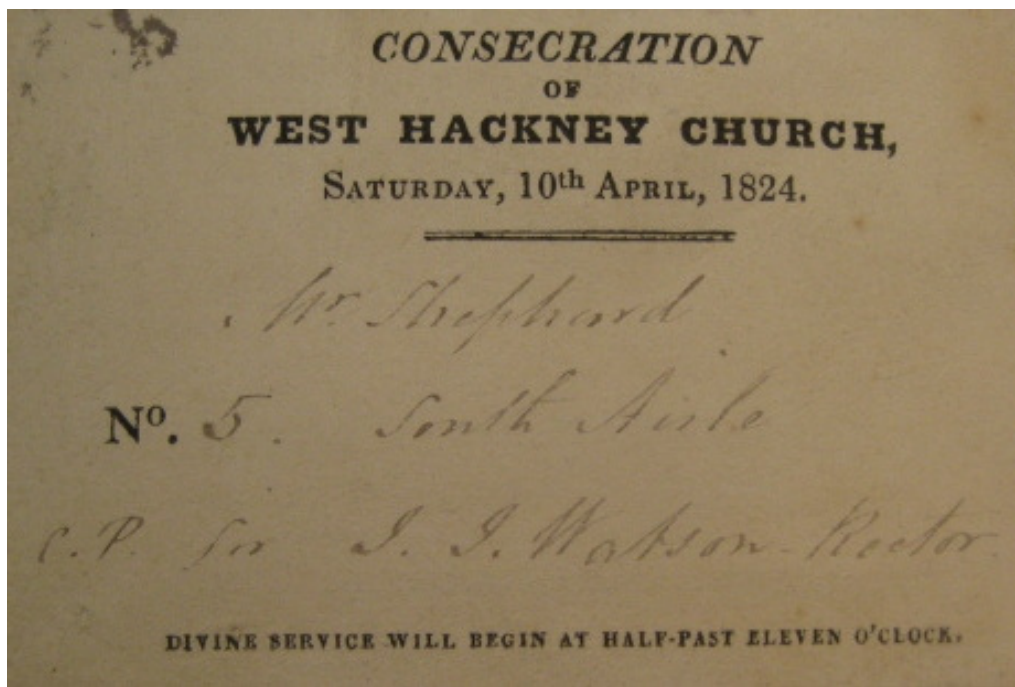 CONSECRATION
OF
WEST HACKNEY CHURCH,
SATURDAY, 10th APRIL, 1824.
Mr. Shephard
No. 5. South Aisle
C. P. for J. J. Watson - Rector
DIVINE SERVICE WILL BEGIN AT HALF-PAST ELEVEN O'CLOCK.